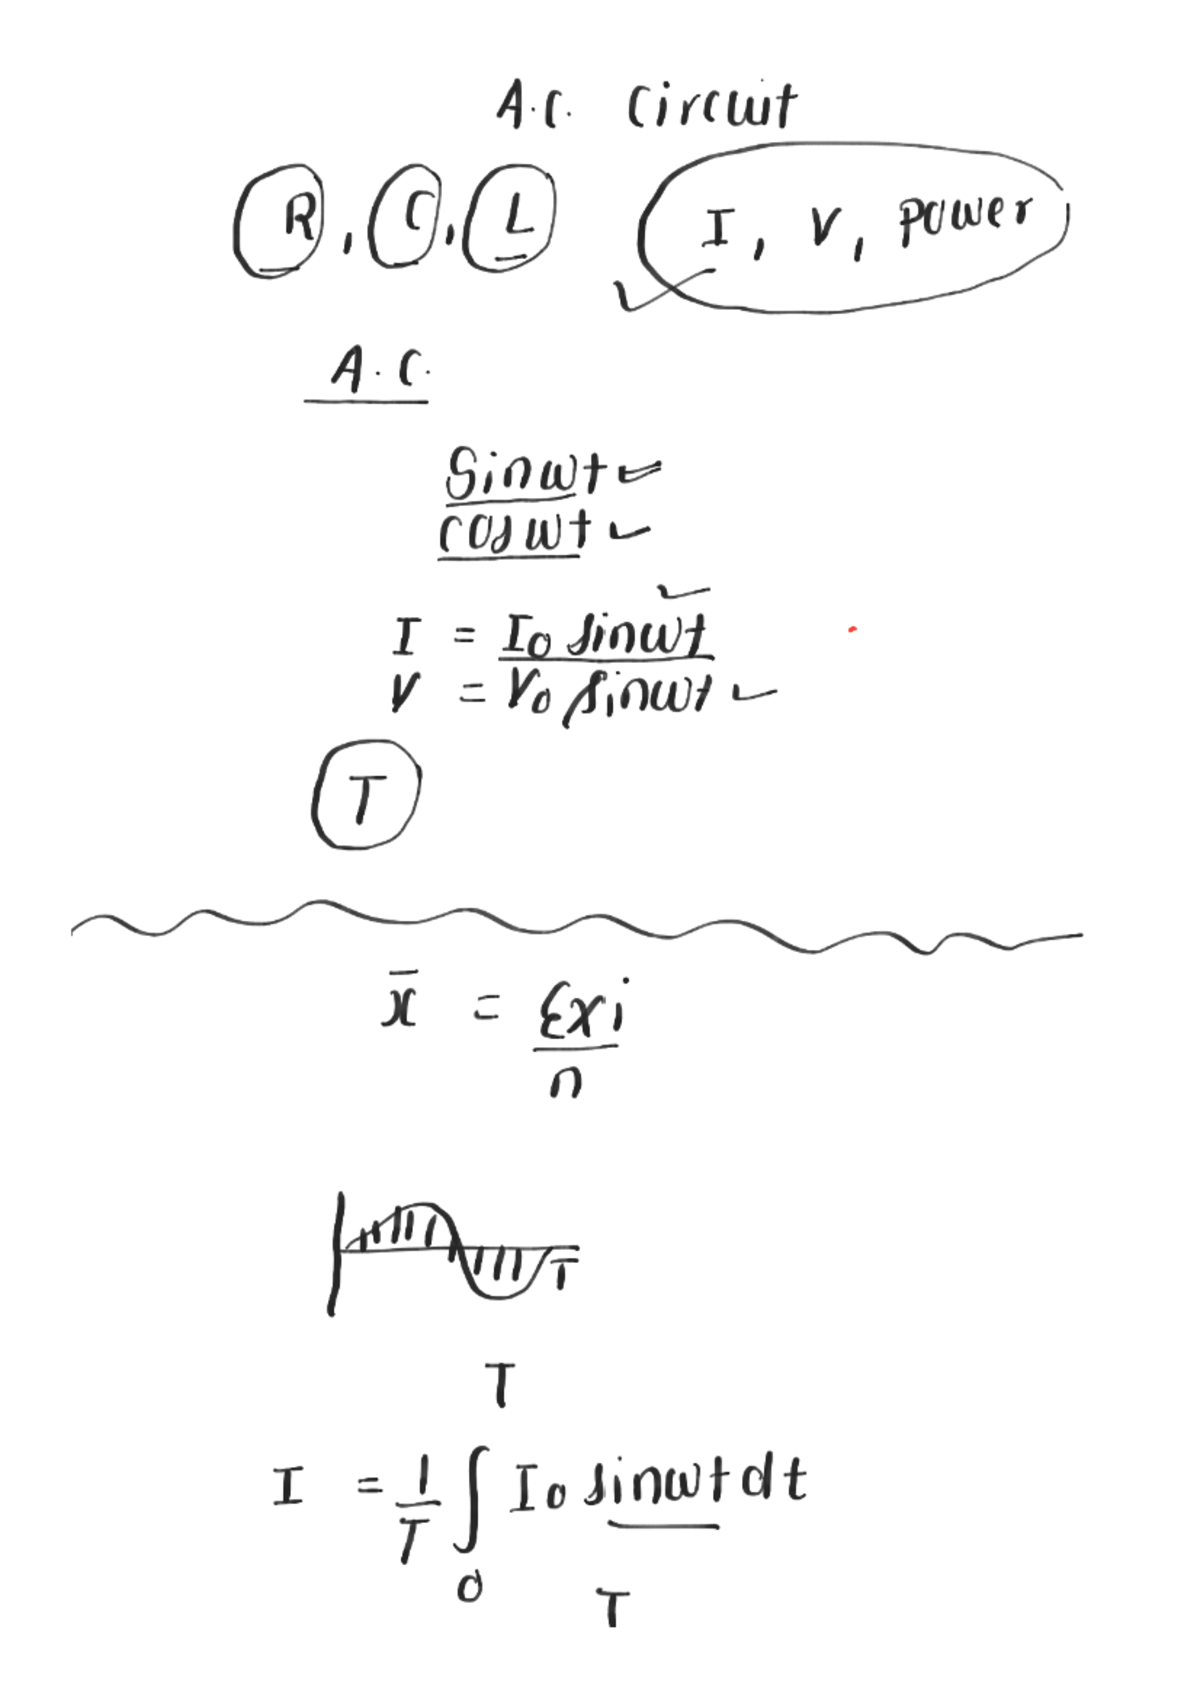 A.C. Circuit
R, C, L I, V, power
A.C.
Sinωt
cosωt
I = I0 sinωt
V = V0 sinωt
T
x̄ = Σxi
n
T
T
I = 1/T ∫ I0 sinωt dt
0 T